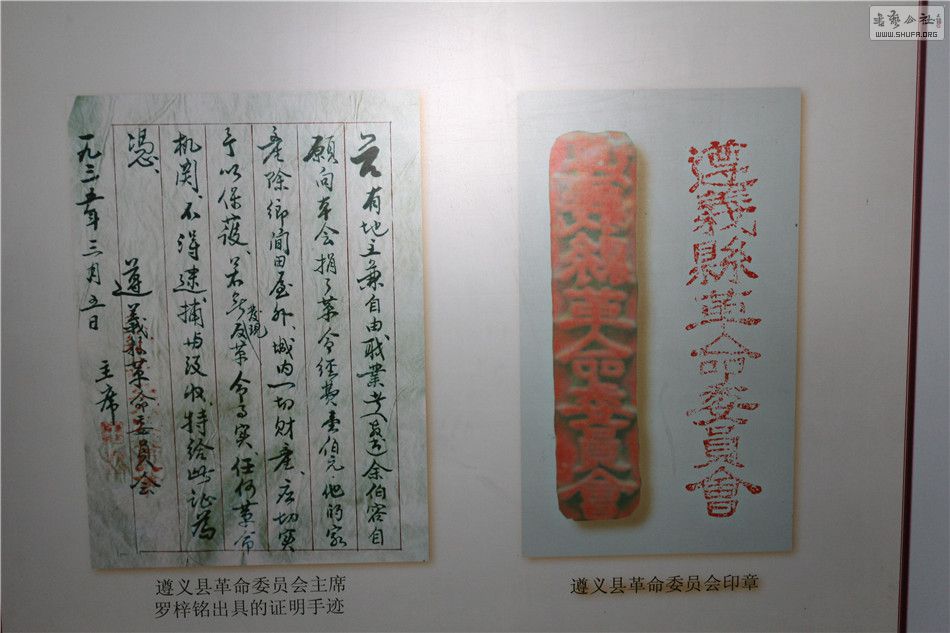 兹有地主兼自由职业者余伯容自
願向本会捐了革命经费壹佰元，他的家
產除鄉间田屋外、城内一切财產、应切实
予以保護、若无发現反革命事实、任何革命
机関、不得逮捕与没收、特给此证為
憑、
遵義縣革命委員会
主席
一九三五年三月五日
遵义县革命委员会主席
罗梓铭出具的证明手迹
遵義縣革命委員會
遵义县革命委员会印章
書艺公社
WWW.SHUFA.ORG